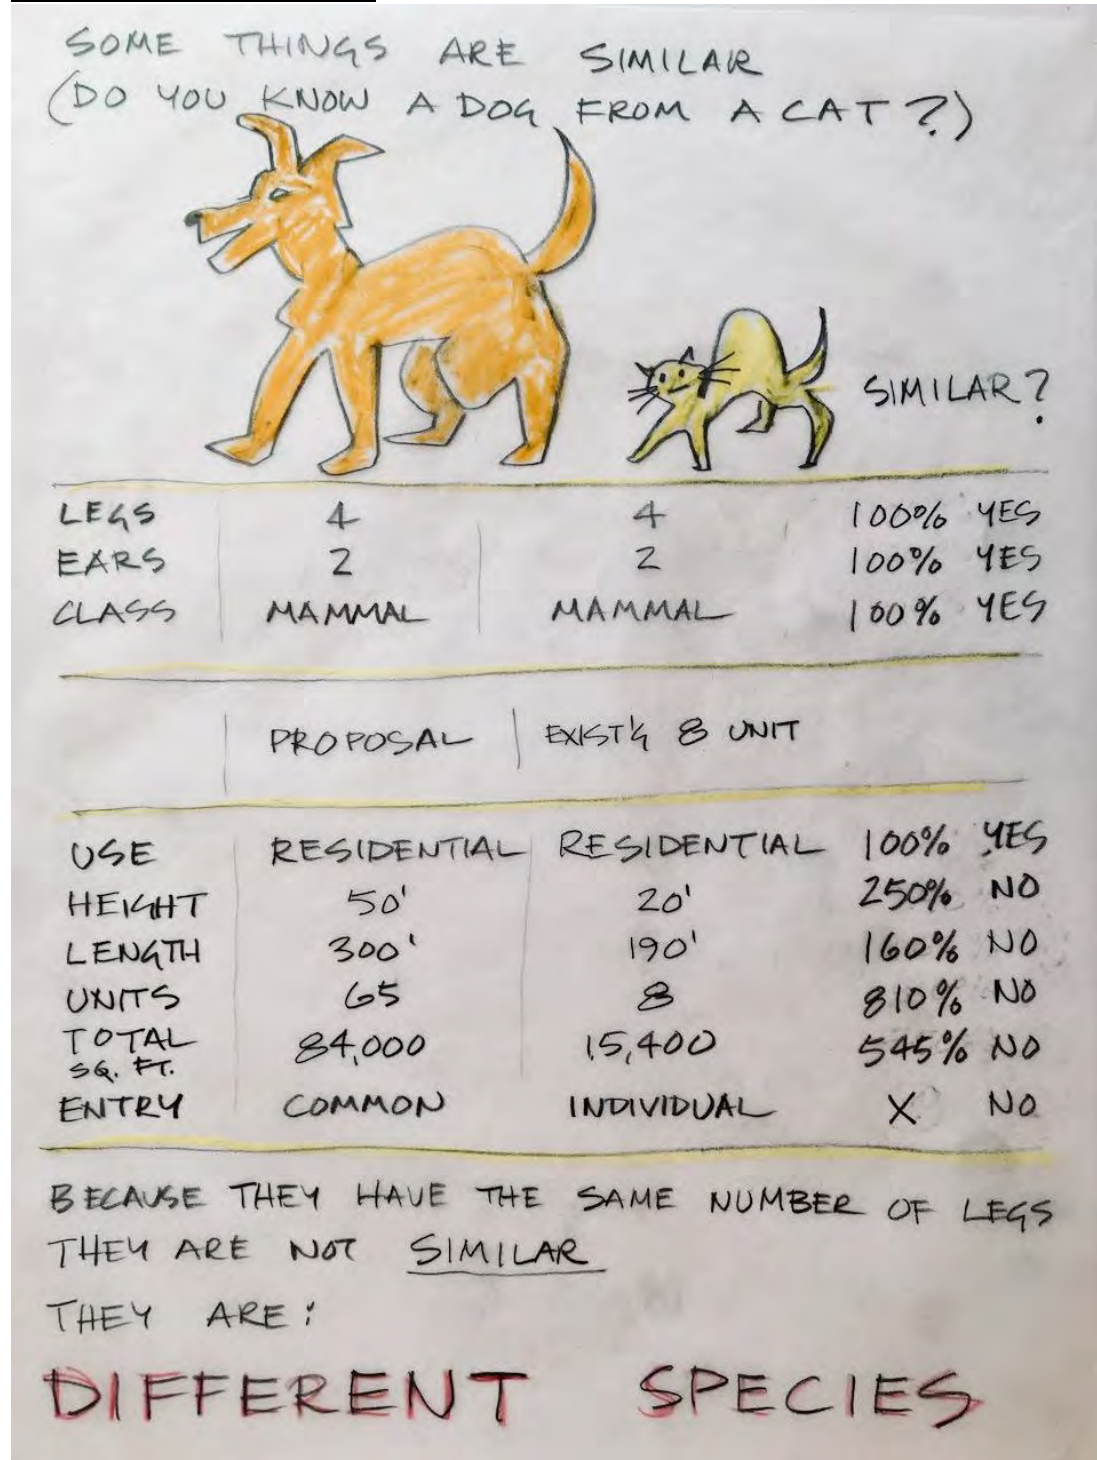 SOME THINGS ARE SIMILAR
(DO YOU KNOW A DOG FROM A CAT?)
SIMILAR?
LEGS 4 4 100% YES
EARS 2 2 100% YES
CLASS MAMMAL MAMMAL 100% YES
PROPOSAL EXIST'G 8 UNIT
USE RESIDENTIAL RESIDENTIAL 100% YES
HEIGHT 50' 20' 250% NO
LENGTH 300' 190' 160% NO
UNITS 65 8 810% NO
TOTAL SQ. FT. 84,000 15,400 545% NO
ENTRY COMMON INDIVIDUAL X NO
BECAUSE THEY HAVE THE SAME NUMBER OF LEGS
THEY ARE NOT SIMILAR
THEY ARE:
DIFFERENT SPECIES